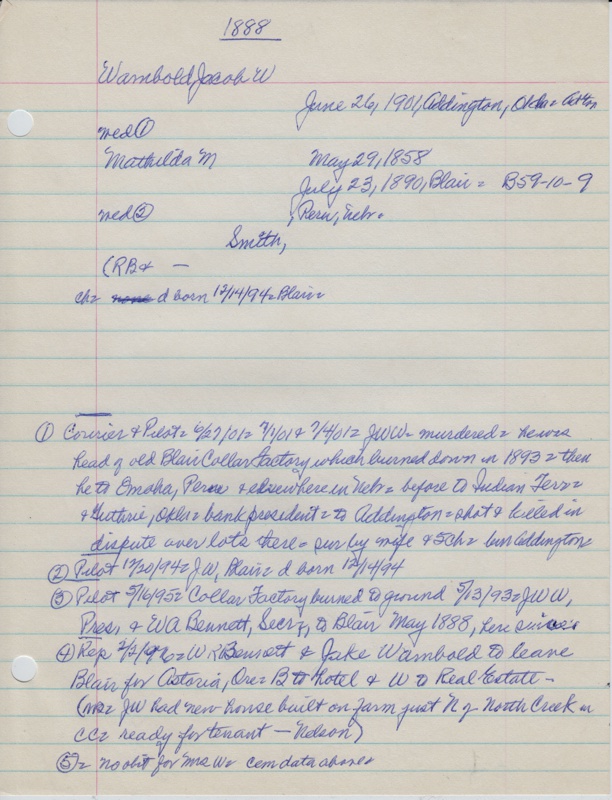 1888
Wambold, Jacob W
June 26, 1901, Addington, Okla =
med ①
Mathilda M May 29, 1858
July 23, 1890, Blair = B59-10-9
med ② , Peru, Nebr =
Smith,
(RB& —
ch= none d born 12/14/94= Blair=
① Courier & Pilot= 6/27/01= 7/1/01 & 7/4/01= JWW= murdered = he was
head of old Blair Collar Factory which burned down in 1893 = then
he to Omaha, Peru & elsewhere in Nebr = before to Indian Terr=
& Guthrie, Okla = bank president = to Addington = shot & killed in
dispute over lots there = sur by wife & 5ch = bur Addington=
② Pilot 12/20/94= JW, Blair= d born 12/14/94
③ Pilot 5/16/95= Collar Factory burned to ground 5/13/93= JWW,
Pres, & WA Bennett, Secry, to Blair May 1888, here since
④ Rep 2/2/96= W R Bennett & Jake Wambold to leave
Blair for Astoria, Ore= B to hotel & W to Real Estate -
= JW had new house built on farm just N of North Creek in
CC= ready for tenant — Nelson)
⑤= no obit for Mrs W= cem data above=